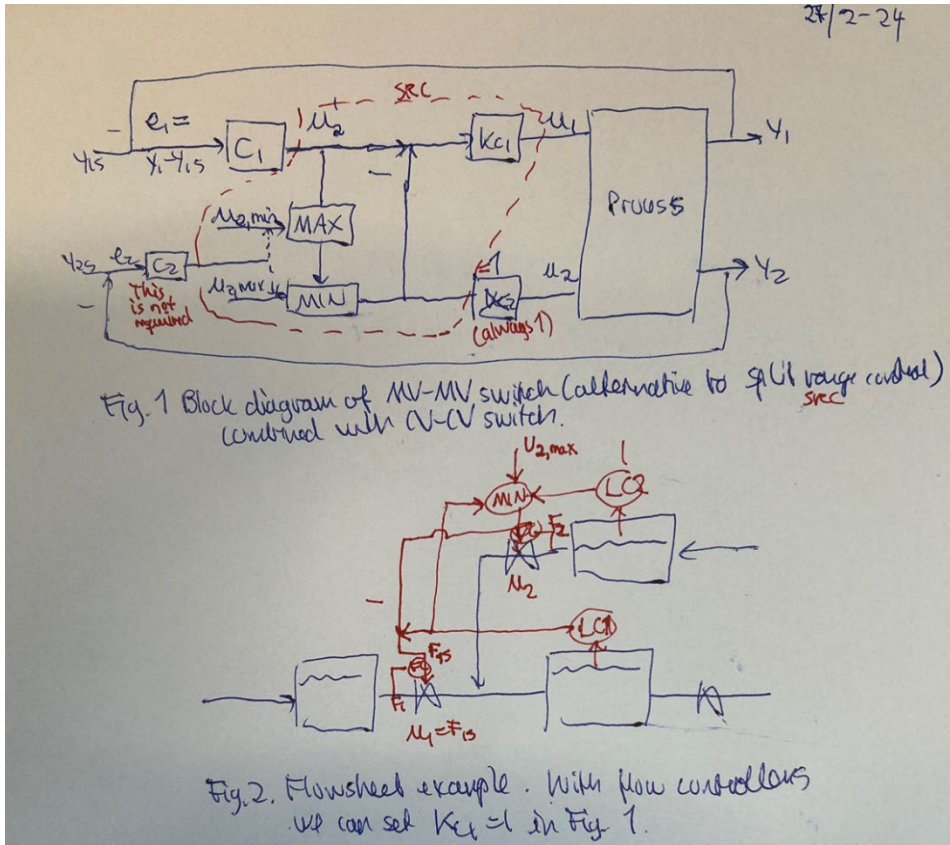 27/2-24
SRC
e₁ =
y₁-y₁s
y₁s
-
C₁
u₂⁺
-
Kc1
u₁
Process
y₁
u₂,min
MAX
y₂s
e₂
C₂
This
is not
required
u₂,max
MIN
=1
Kc2
(always 1)
u₂
y₂
-
Fig. 1 Block diagram of MV-MV switch (alternative to split range control)
SRC
combined with CV-CV switch.
U₂,max
MIN
LC2
FC
F₂
u₂
-
LC1
F₁s
FC
F₁
u₁ = F₁s
Fig. 2. Flowsheet example. With flow controllers
we can set Kc1 = 1 in Fig 1.